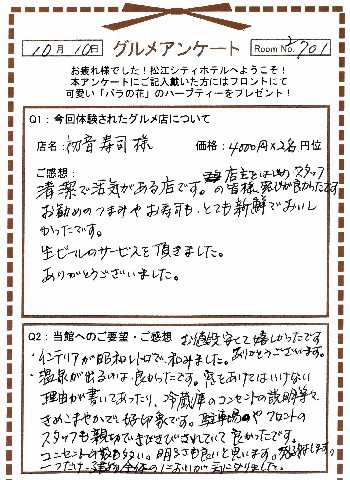 10月10日 グルメアンケート Room No. 2701
お疲れ様でした！松江シティホテルへようこそ！
本アンケートにご記入戴いた方にはフロントにて
可愛い「バラの花」のハーブティーをプレゼント！
Q1：今回体験されたグルメ店について
店名：初音寿司様 価格：4000円×2名 円位
ご感想：
店主をはじめスタッフ
清潔で活気がある店です。の皆様感じが良かったです
お勧めのつまみやお寿司も、とても新鮮でおいし
かったです。
生ビールのサービスを頂きました。
ありがとうございました。
Q2：当館へのご要望・ご感想 お値段安くて嬉しかったです
ありがとうございます。
・インテリアが昭和レトロで、和みました。
・温泉が出るのは良かったです。窓をあけてはいけない
理由が書いてあったり、冷蔵庫のコンセントの説明等々
きめこまやかで好印象です。駐車場やフロントの
スタッフも親切できびきびされていて良かったです。
コンセントの数も多い。明るさも良いと思います。
一つだけ、建物全体のにおいが気になりました。